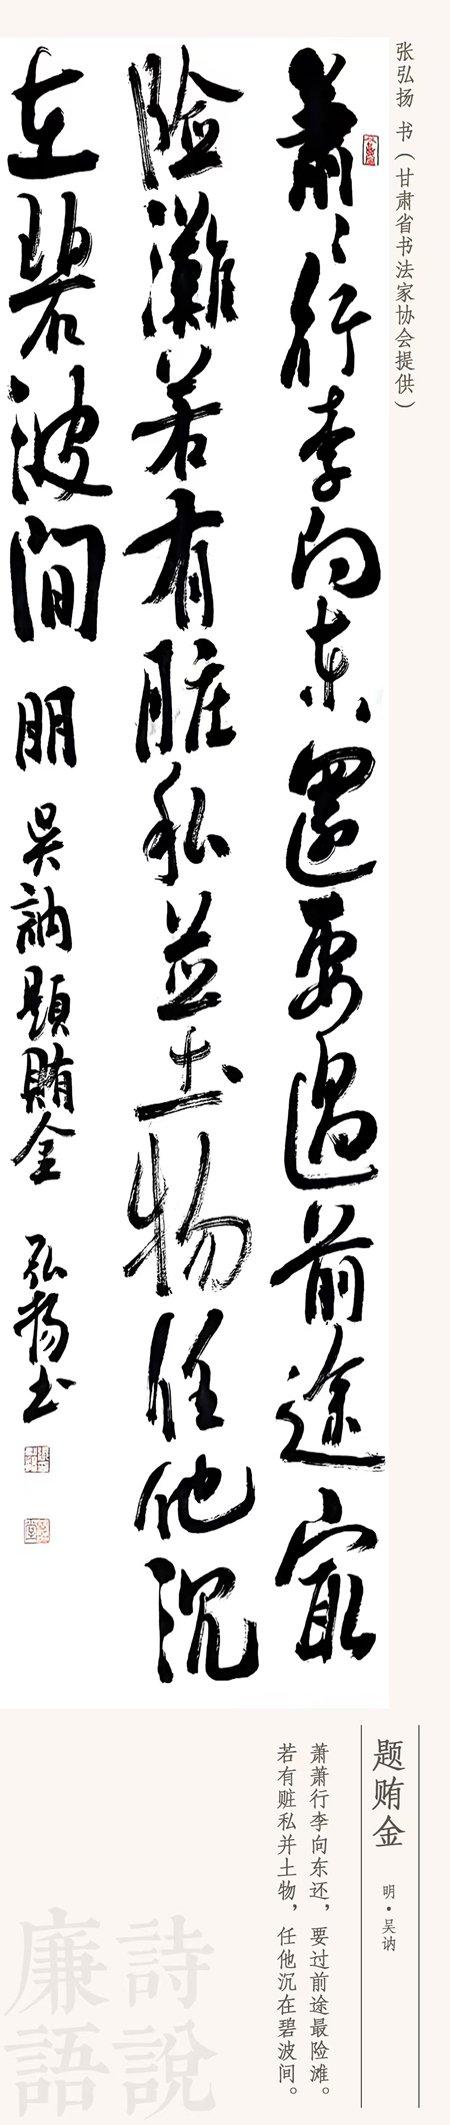 张弘扬 书（甘肃省书法家协会提供）
蕭〻行李向东還要過前途最
险灘若有脏私並土物任他沉
在碧波间 明 吳訥題賄金 弘揚书
题贿金
明·吴讷
萧萧行李向东还，要过前途最险滩。
若有赃私并土物，任他沉在碧波间。
詩說
廉語